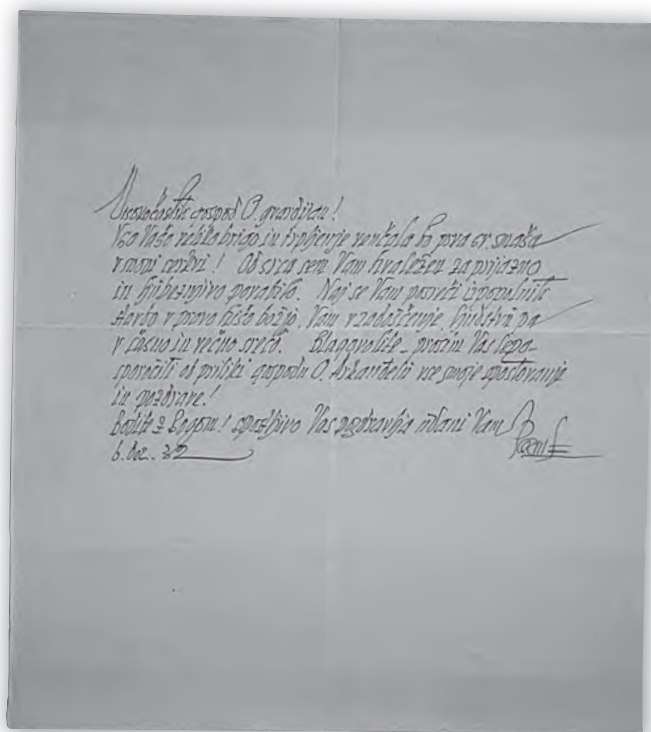 Visokočastiti gospod O. gvardijan!
Vso Vašo veliko brigo in trpljenje venčala bo prva sv. maša
v novi cerkvi! Od srca sem Vam hvaležen za prijazno
in ljubeznjivo povabilo. Naj se Vam posreči izpopolniti
stavbo v pravo hišo božjo, Vam v zadoščenje, ljudstvu pa
v časno in večno srečo. Blagovolite, prosim Vas lepo
sporočiti ob priliki gospodu O. Arhanđelu vse svoje spoštovanje
in pozdrave!
Bodite z Bogom! spoštljivo Vas pozdravlja vdani Vam
6. dec. 32